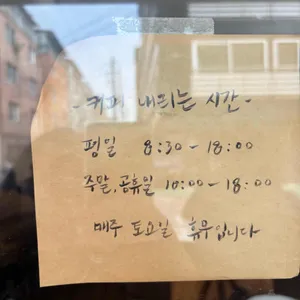 - 커피 내리는 시간 -
평일 8:30 - 18:00
주말,공휴일 10:00 - 18:00
매주 토요일 휴무입니다